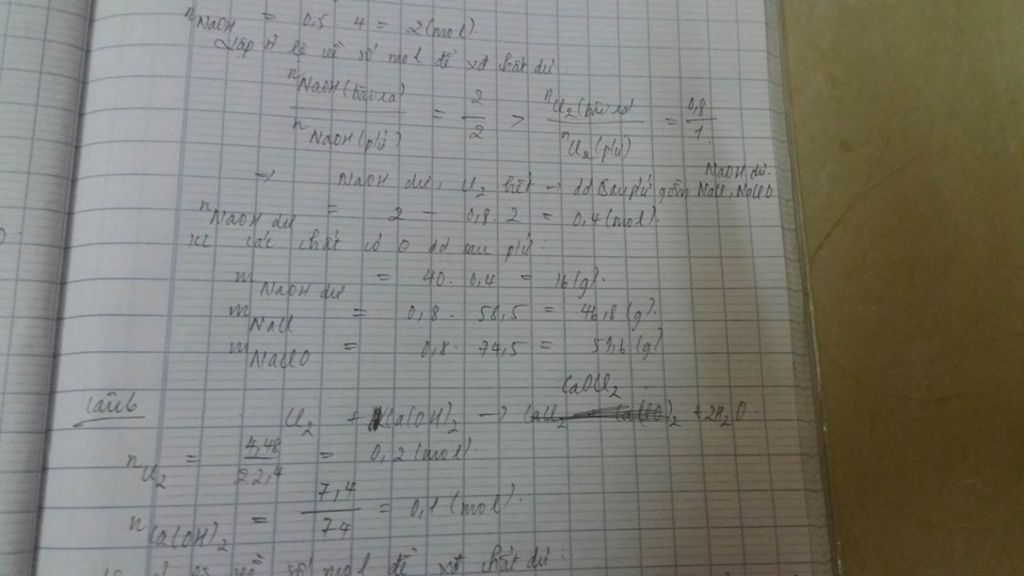 nNaOH = 0,5 . 4 = 2 (mol).
Lập tỉ lệ về số mol để xđ chất dư
nNaOH (bài ra) / nNaOH (pứ) = 2/2 > nCl2 (bài ra) / nCl2 (pứ) = 0,8/1
→ NaOH dư, Cl2 hết → dd sau pứ gồm NaCl, NaClO
NaOH dư.
nNaOH dư = 2 - 0,8 . 2 = 0,4 (mol).
KL các chất có ở dd sau pứ:
mNaOH dư = 40 . 0,4 = 16 (g).
mNaCl = 0,8 . 58,5 = 46,8 (g).
mNaClO = 0,8 . 74,5 = 59,6 (g)
CaOCl2
Câu 6 Cl2 + Ca(OH)2 → + 2H2O
nCl2 = 4,48/22,4 = 0,2 (mol).
nCa(OH)2 = 7,4/74 = 0,1 (mol).
về số mol để xđ chất dư.